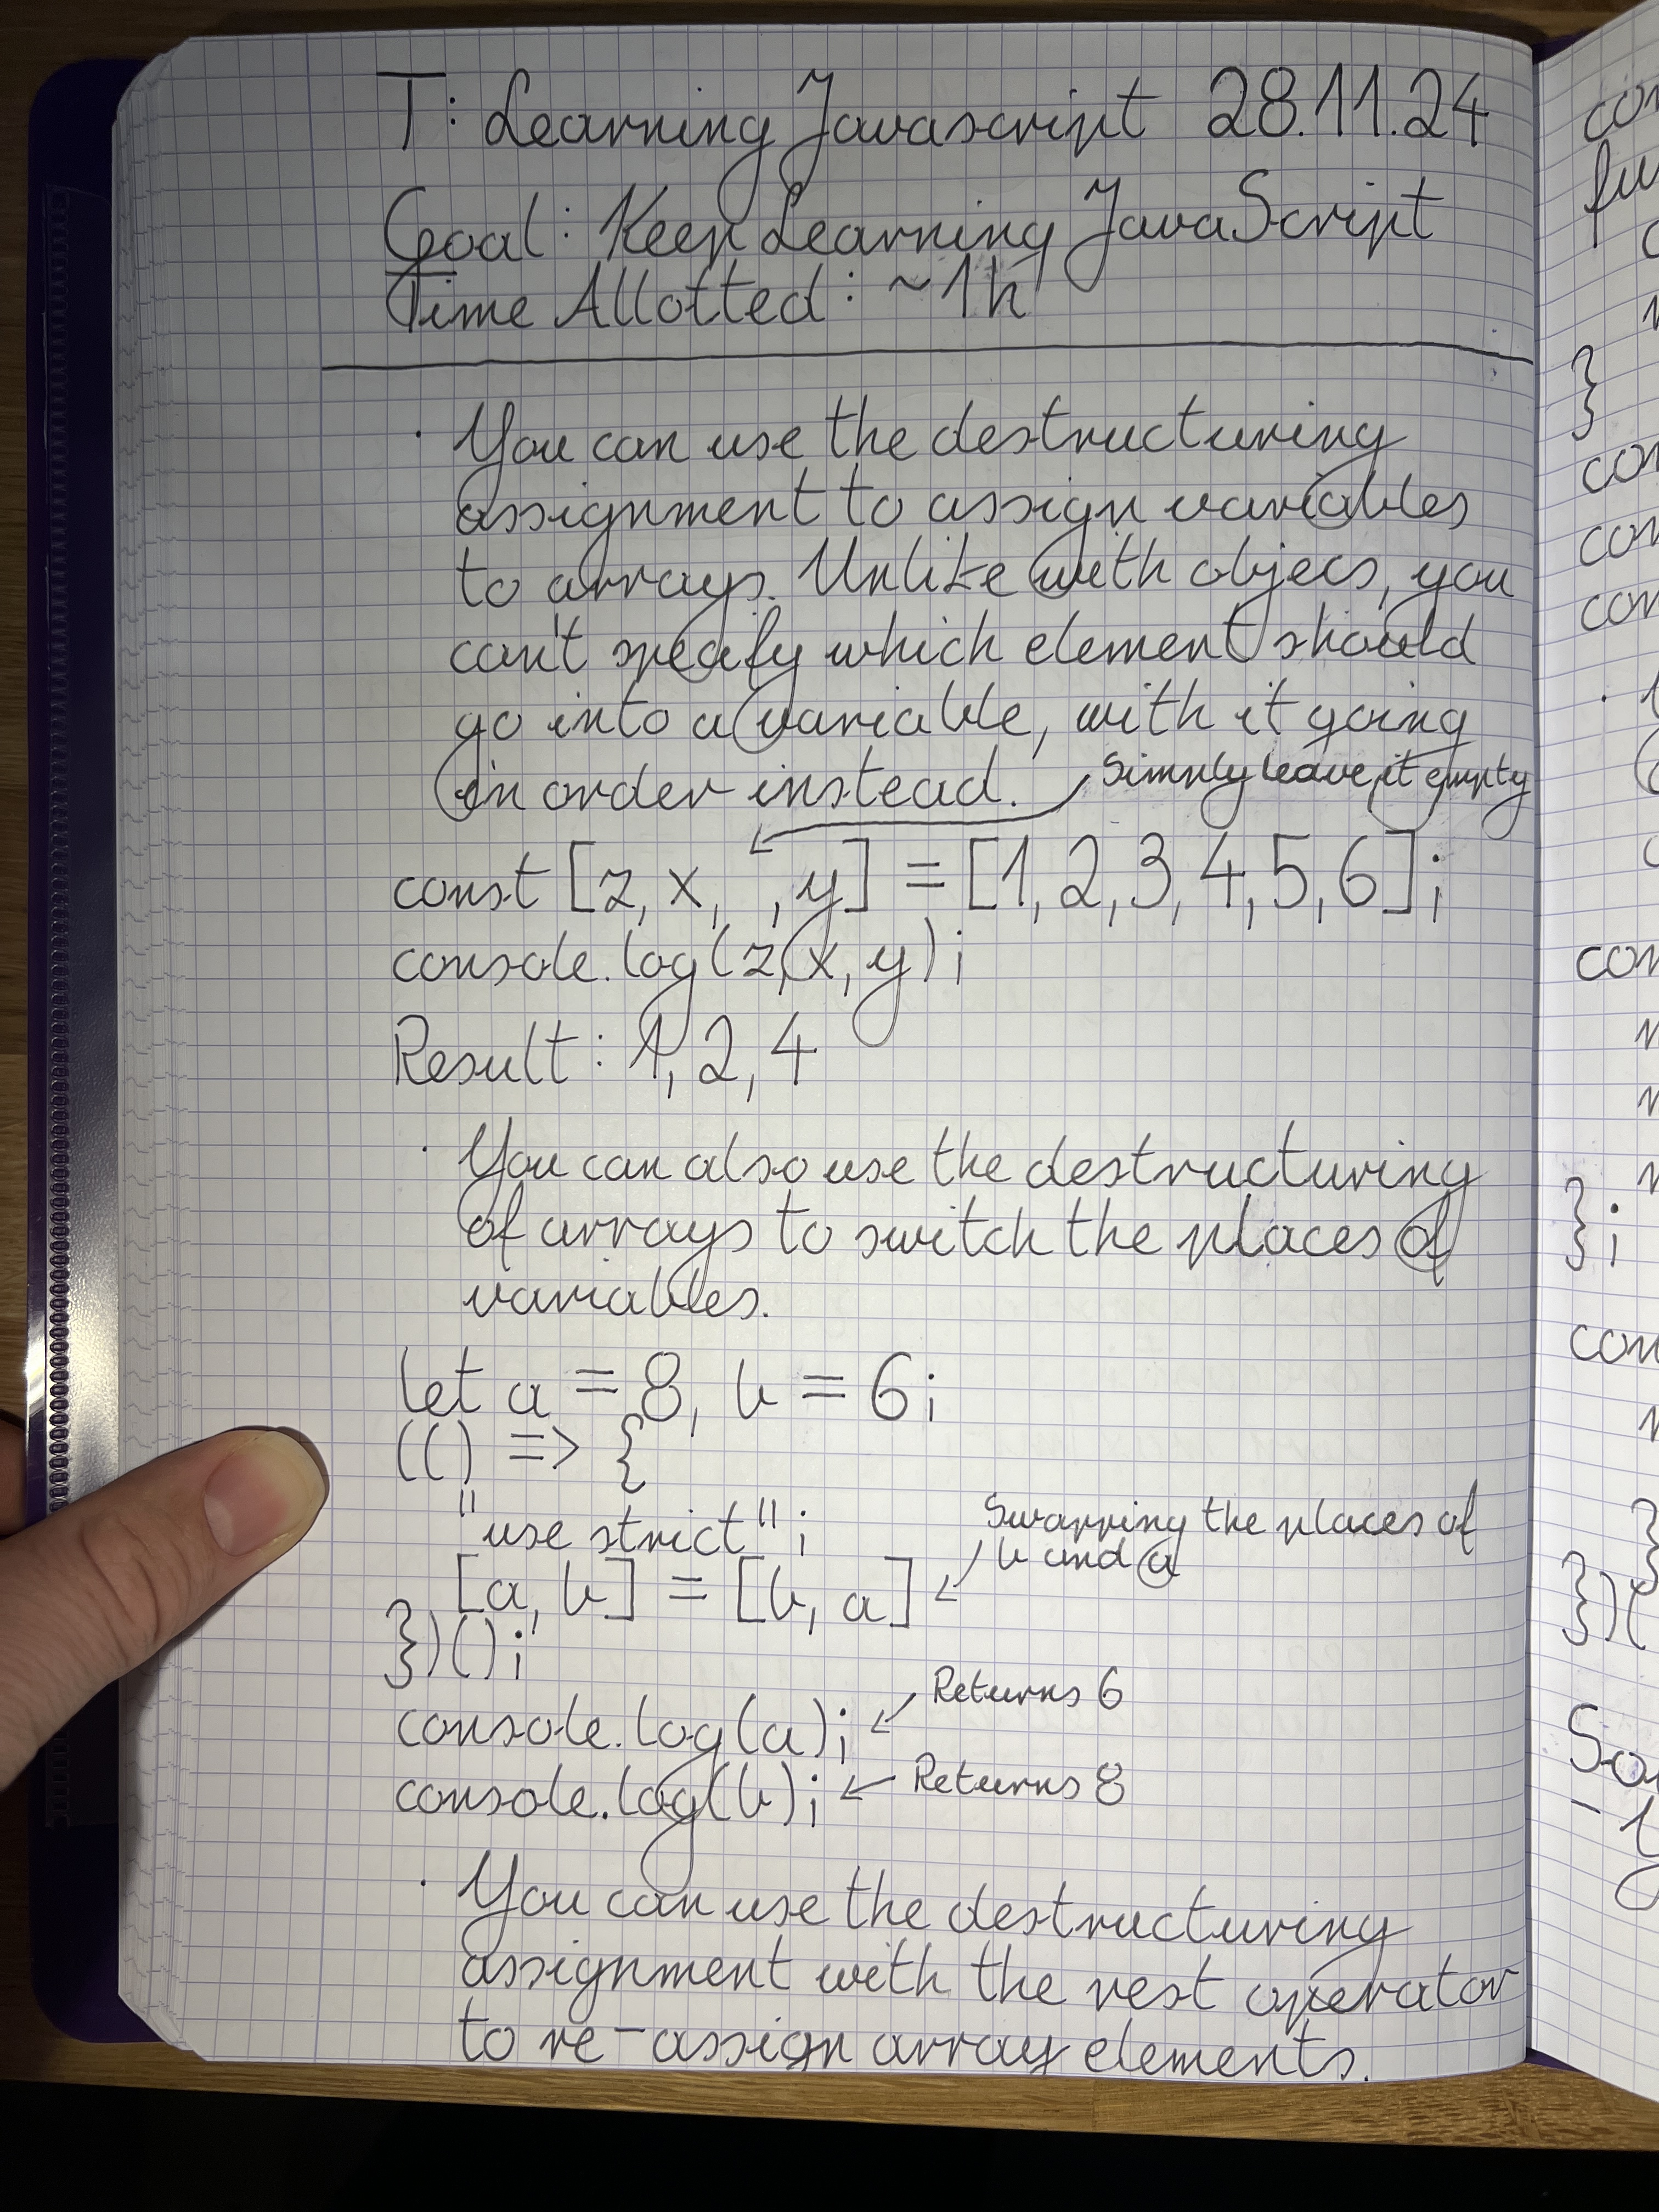 T: Learning Javascript 28.11.24
Goal: Keep Learning JavaScript
Time Allotted: ~1h
· You can use the destructuring
assignment to assign variables
to arrays. Unlike with objecs, you
can't specify which element should
go into a variable, with it going
in order instead.
Simply leave it empty
const [z, x, , y] = [1,2,3,4,5,6];
console.log(z, x, y);
Result: 1, 2, 4
· You can also use the destructuring
of arrays to switch the places of
variables.
let a = 8, b = 6;
(() => {
"use strict";
Swapping the places of
b and a
[a, b] = [b, a]
})();
console.log(a);
Returns 6
console.log(b);
Returns 8
· You can use the destructuring
assignment with the rest operator
to re-assign array elements.
con
fu
}
con
con
con
con
};
con
}
})(
So